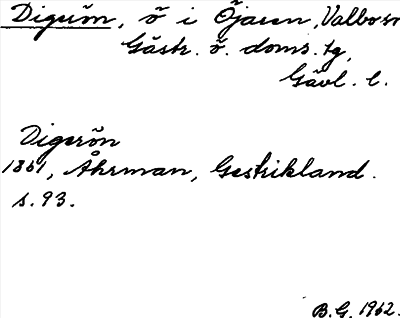 Digrön, ö i Öjaren, Valbo sn
Gästr. ö. doms. tg,
Gävl. l.
Digerön
1861, Åhrman, Gestrikland.
s. 93.
B.G. 1962.